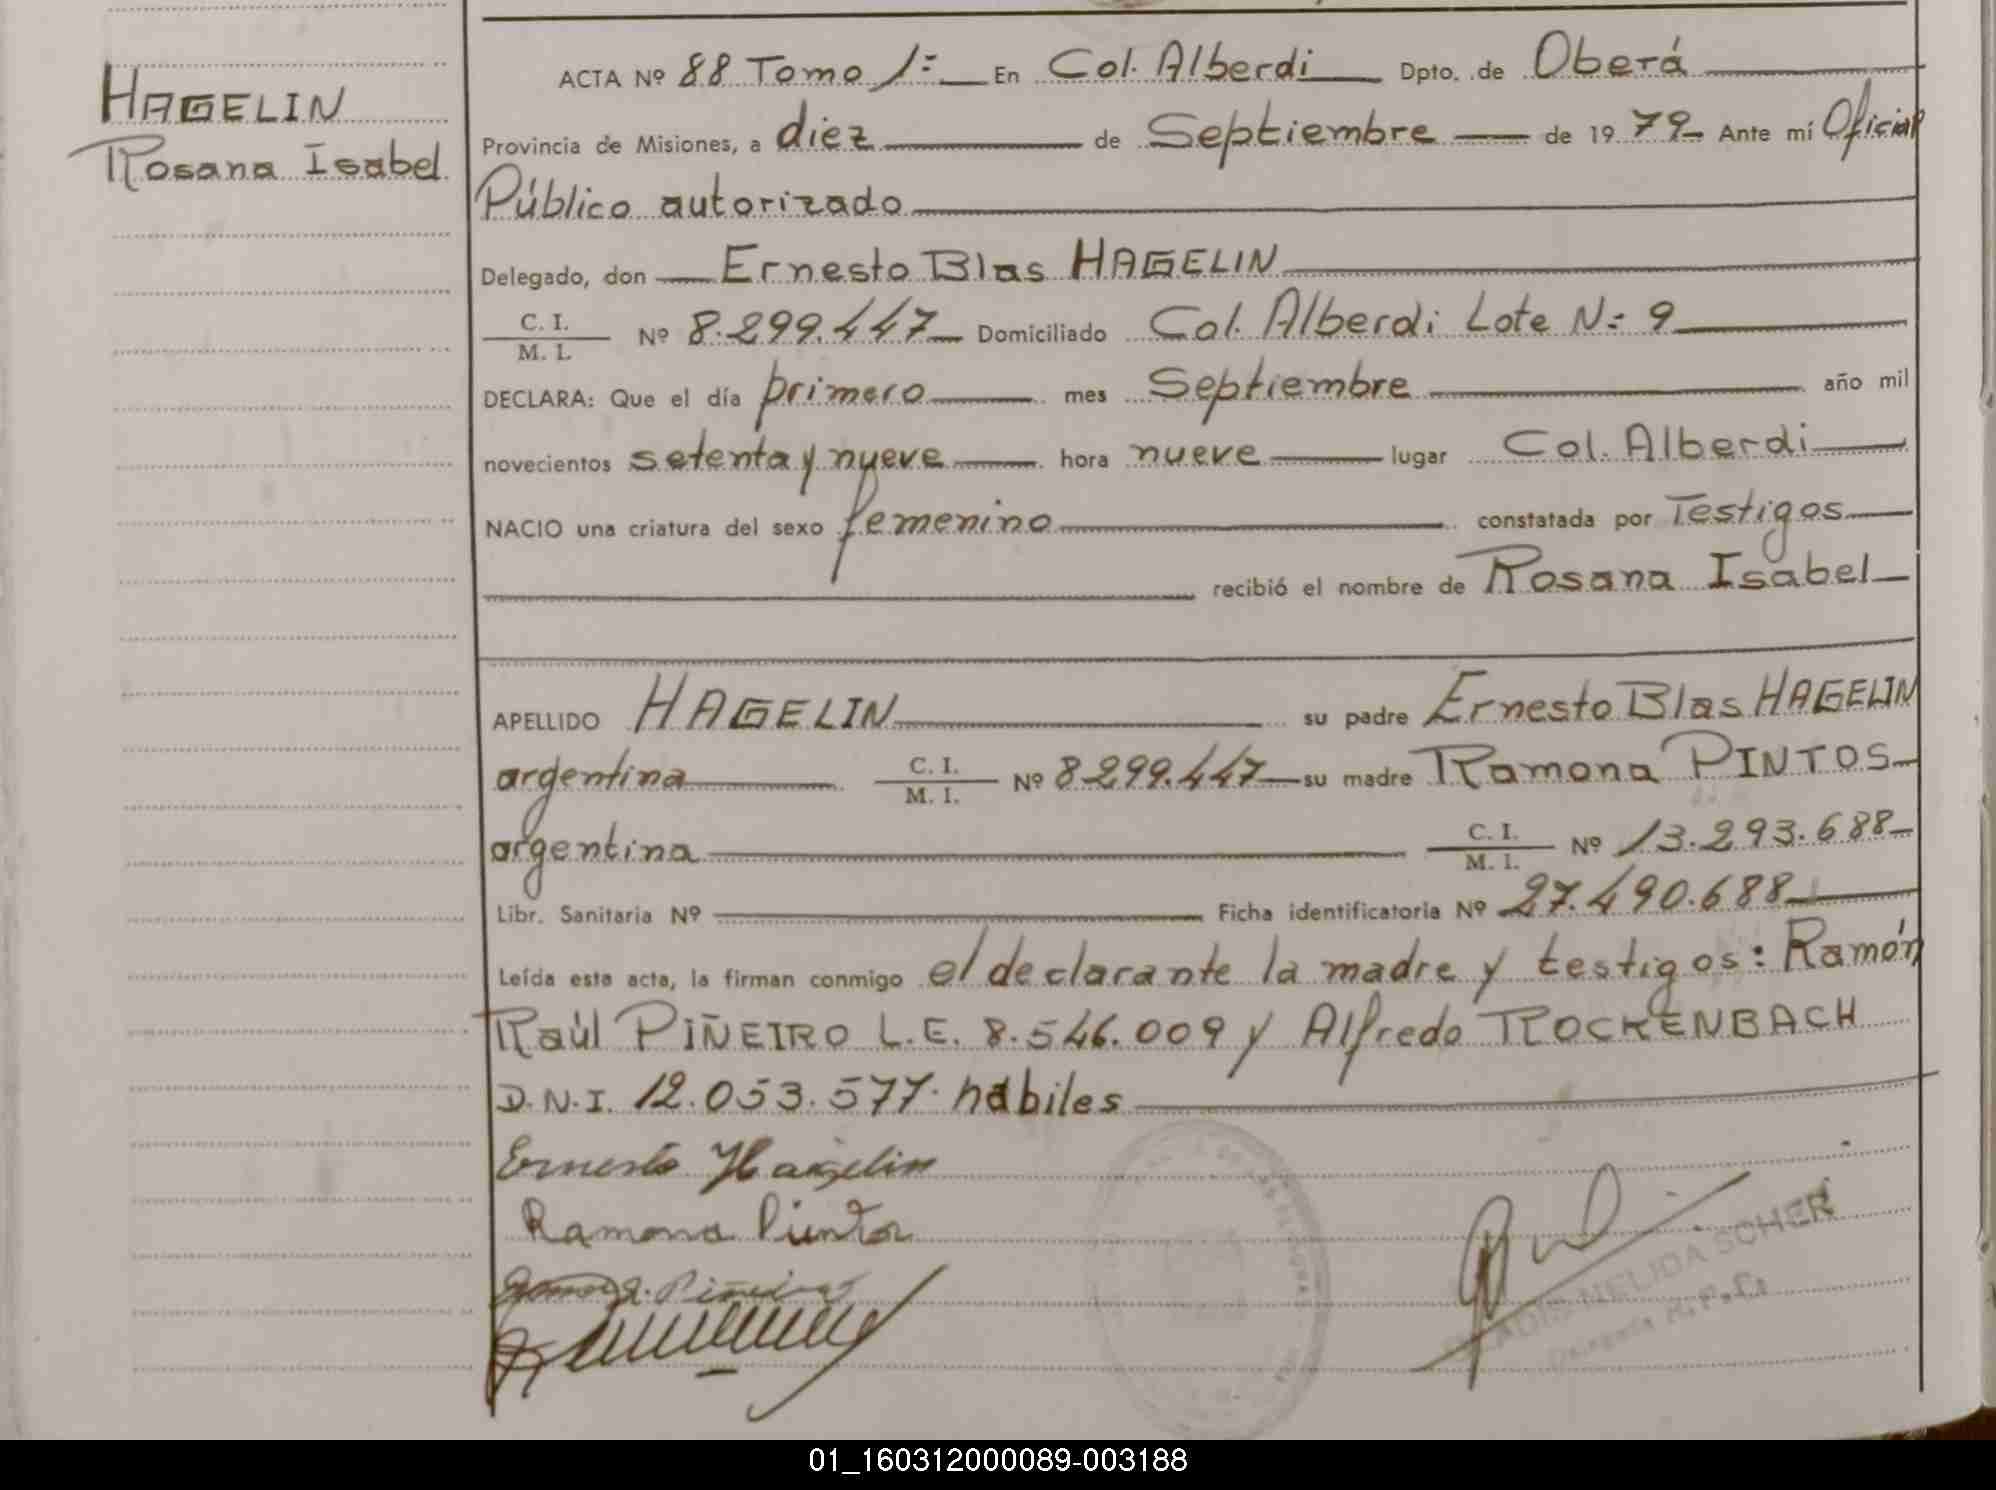 HAGELIN
Rosana Isabel
ACTA Nº 88 Tomo 1= En Col. Alberdi Dpto. de Oberá
Provincia de Misiones, a diez de Septiembre de 1979 Ante mí Oficial
Público autorizado
Delegado, don Ernesto Blas HAGELIN
C. I. / M. I. Nº 8.299.447 Domiciliado Col. Alberdi Lote N= 9
DECLARA: Que el día primero mes Septiembre año mil
novecientos setenta y nueve hora nueve lugar Col. Alberdi
NACIO una criatura del sexo femenino constatada por Testigos
recibió el nombre de Rosana Isabel
APELLIDO HAGELIN su padre Ernesto Blas HAGELIN
argentina C. I. / M. I. Nº 8.299.447 su madre Ramona PINTOS
argentina C. I. / M. I. Nº 13.293.688
Libr. Sanitaria Nº Ficha identificatoria Nº 27.490.688
Leída esta acta, la firman conmigo el declarante la madre y testigos: Ramón
Raúl PIÑEIRO L.E. 8.546.009 y Alfredo ROCKENBACH
D.N.I. 12.053.577. hábiles
Ernesto Hagelin
Ramona Pintos
NELIDA SCHER
01_160312000089-003188